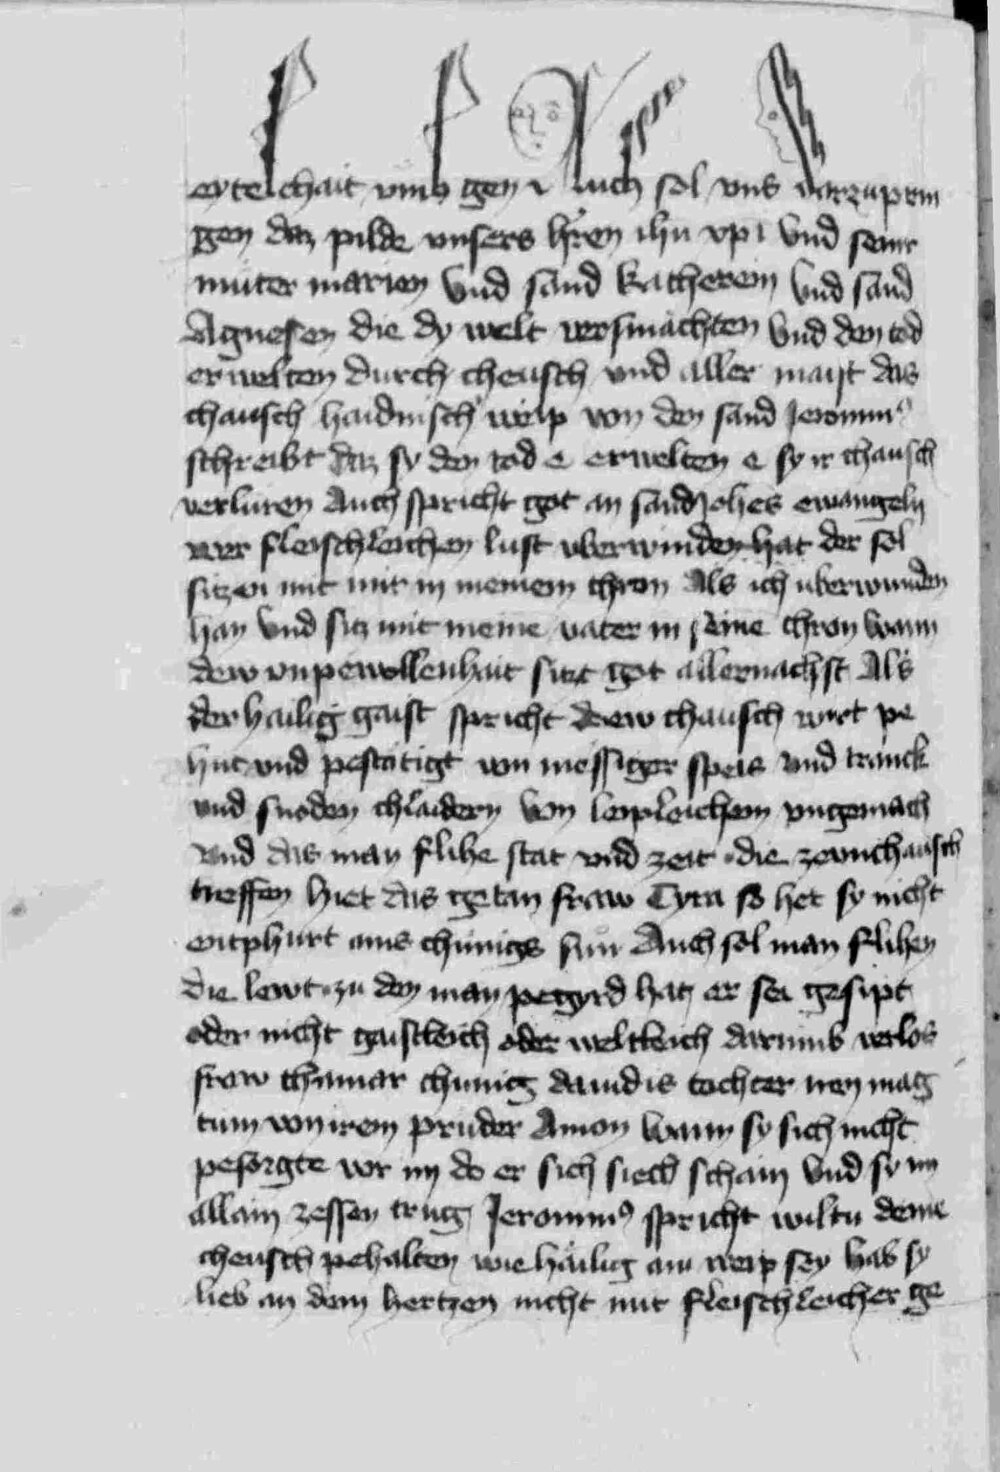 eytelchait umb gen Auch sol uns darzu prin
gen daz pilde unsers hren ihu xpi Vnd seinr
muter marien Vnd sand Katherein Vnd sand
Agnesen die dy welt versmachten Vnd den tod
erwelten durch cheusch vnd aller maist das
chausch haidnisch weip von den sand Jeronimus
schreibt daz sy den tod e erwelten e sy ir chausch
verluren Auch spricht got an sand Johes ewangely
wer fleischleichen lust uberwunden hat der sol
sitzen mit mir in meinem thron Als ich uberwunden
han Vnd sitz mit meine vater in seine thron wann
dew vnpewollenhait sitzt got allernachst Als
der hailig gaist spricht dew chausch wirt pe
hut vnd pestatigt von messiger speis vnd tranck
vnd snoden chlaidern Von leipleichem vngemach
vnd das man flihe stat vnd zeit die ze vnchausch
treffen hiet das getan fraw Tyra so het sy nicht
entphurt ains chunigs sun Auch sol man flihen
die lewt zu den man pegyrd hat er sei gesipt
oder nicht gaistleich oder weltleich darumb verlos
fraw thamar chunig dauidis tochter iren mag
tum von irem pruder Amon wann sy sich nicht
pesorgte vor im do er sich siech schain Vnd sy im
allain zessen trug Jeronimus spricht wiltu deine
cheusch pehalten wie hailig ain weip sey hab sy
lieb an dem hertzen nicht mit fleischleicher ge